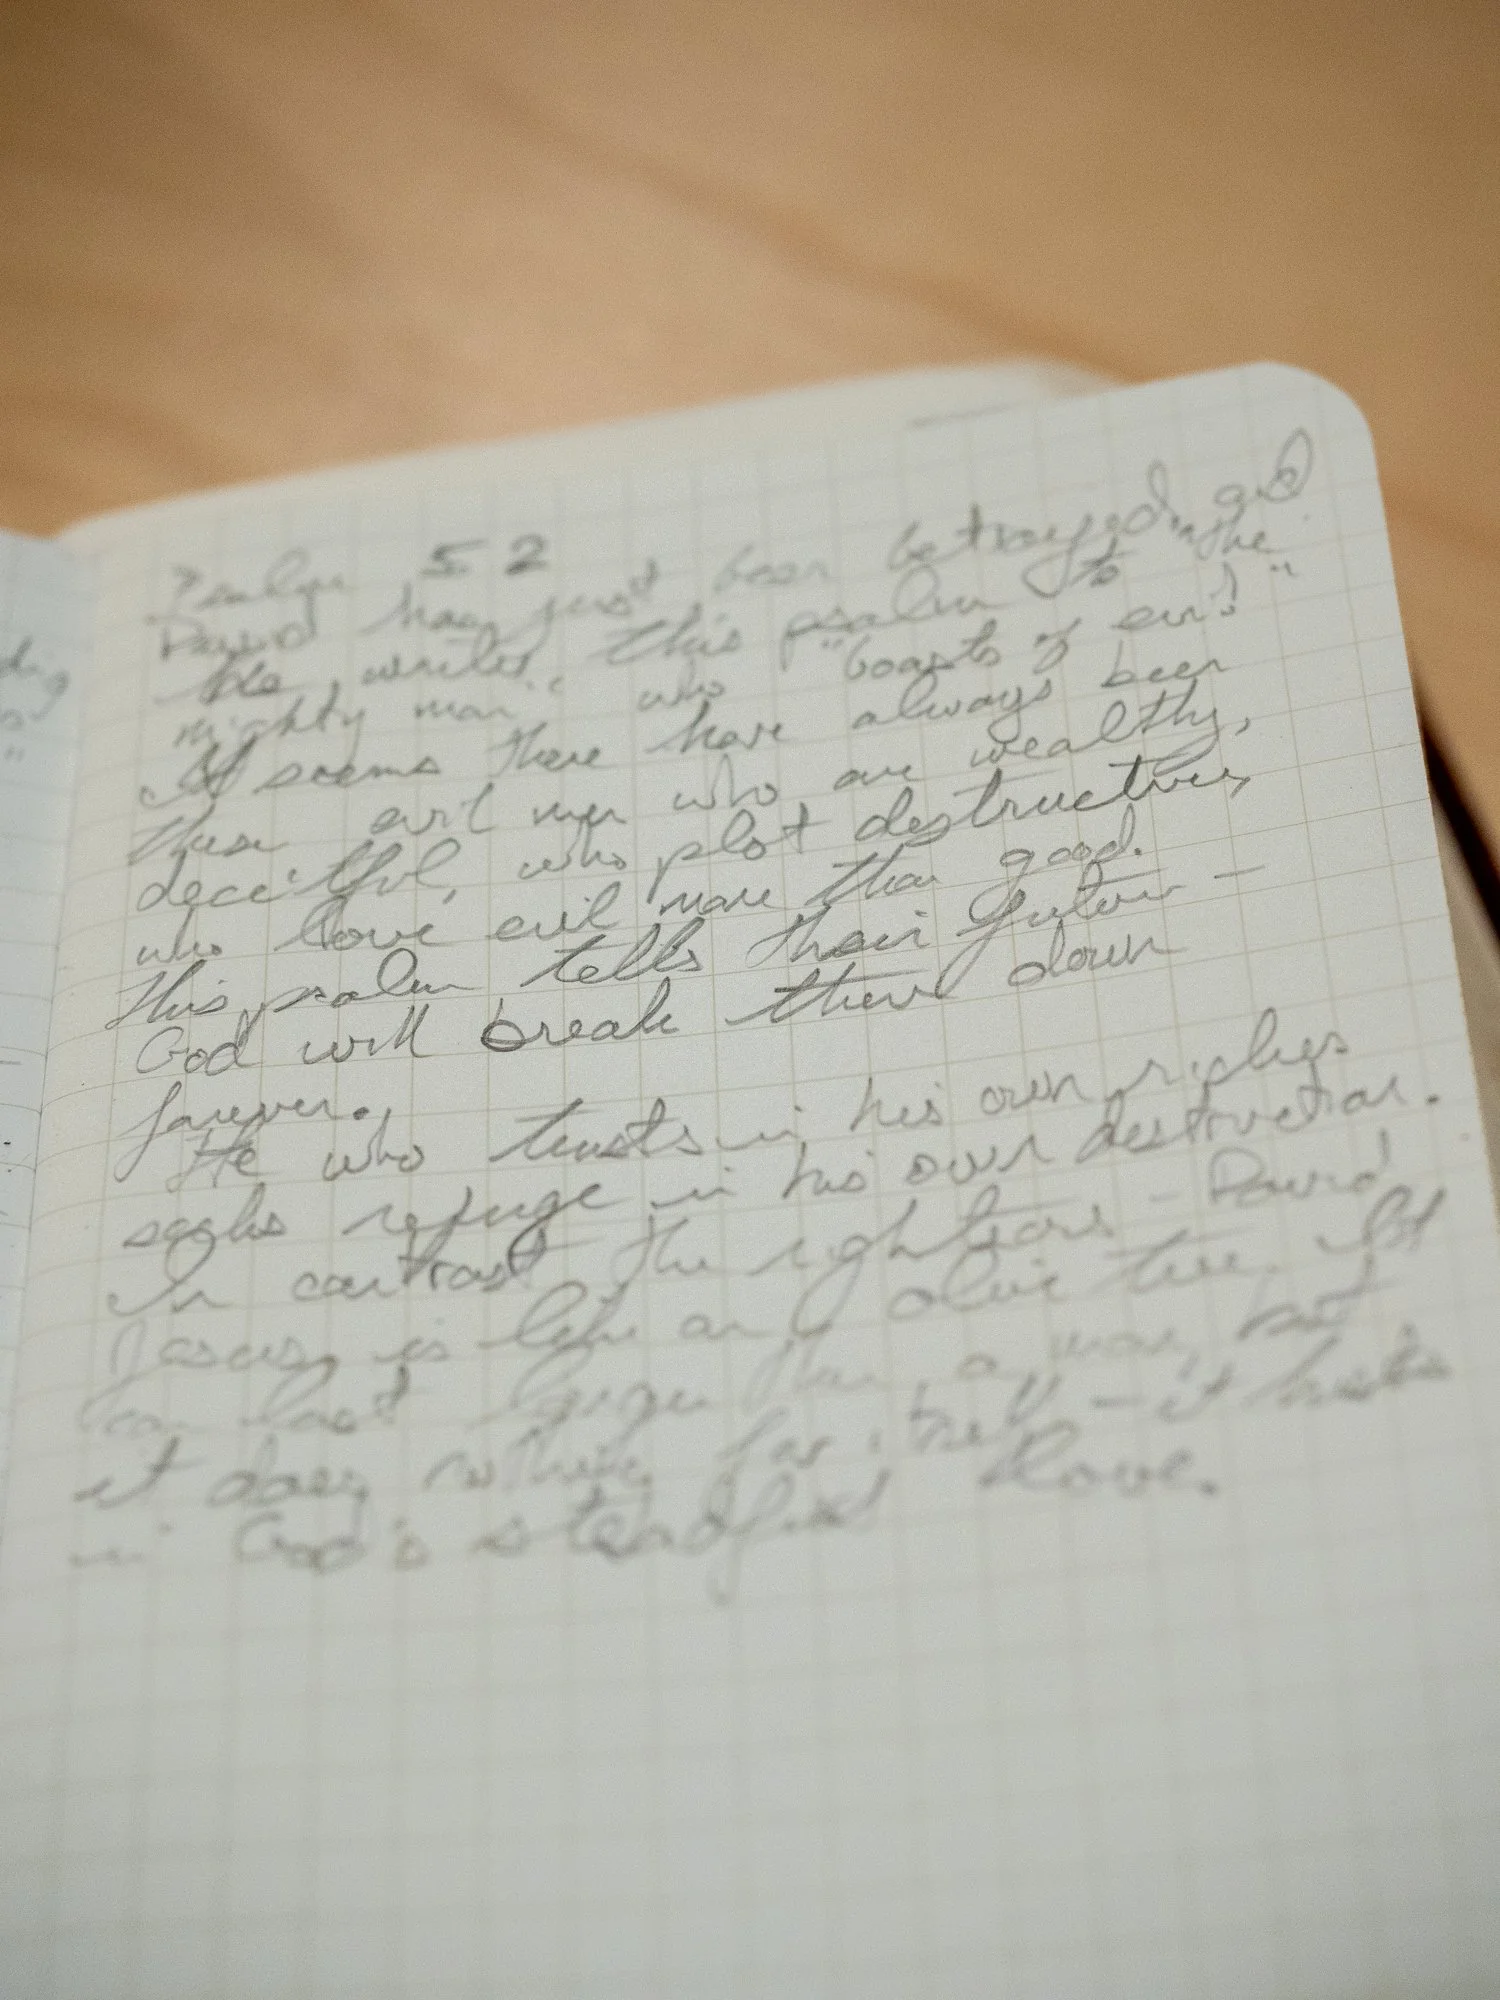 Psalm 52
David has just been betrayed, and
He writes this psalm to "the
mighty man" who "boasts of evil"
It seems there have always been
these evil men who are wealthy,
deceitful, who plot destruction,
who love evil more than good.
This psalm tells their future —
God will break them down
forever.
He who trusts in his own riches
seeks refuge in his own destruction.
In contrast the righteous — David,
Jesus, is like an olive tree. It
can last longer than a man, but
it does nothing for itself — it
in God's steadfast love.